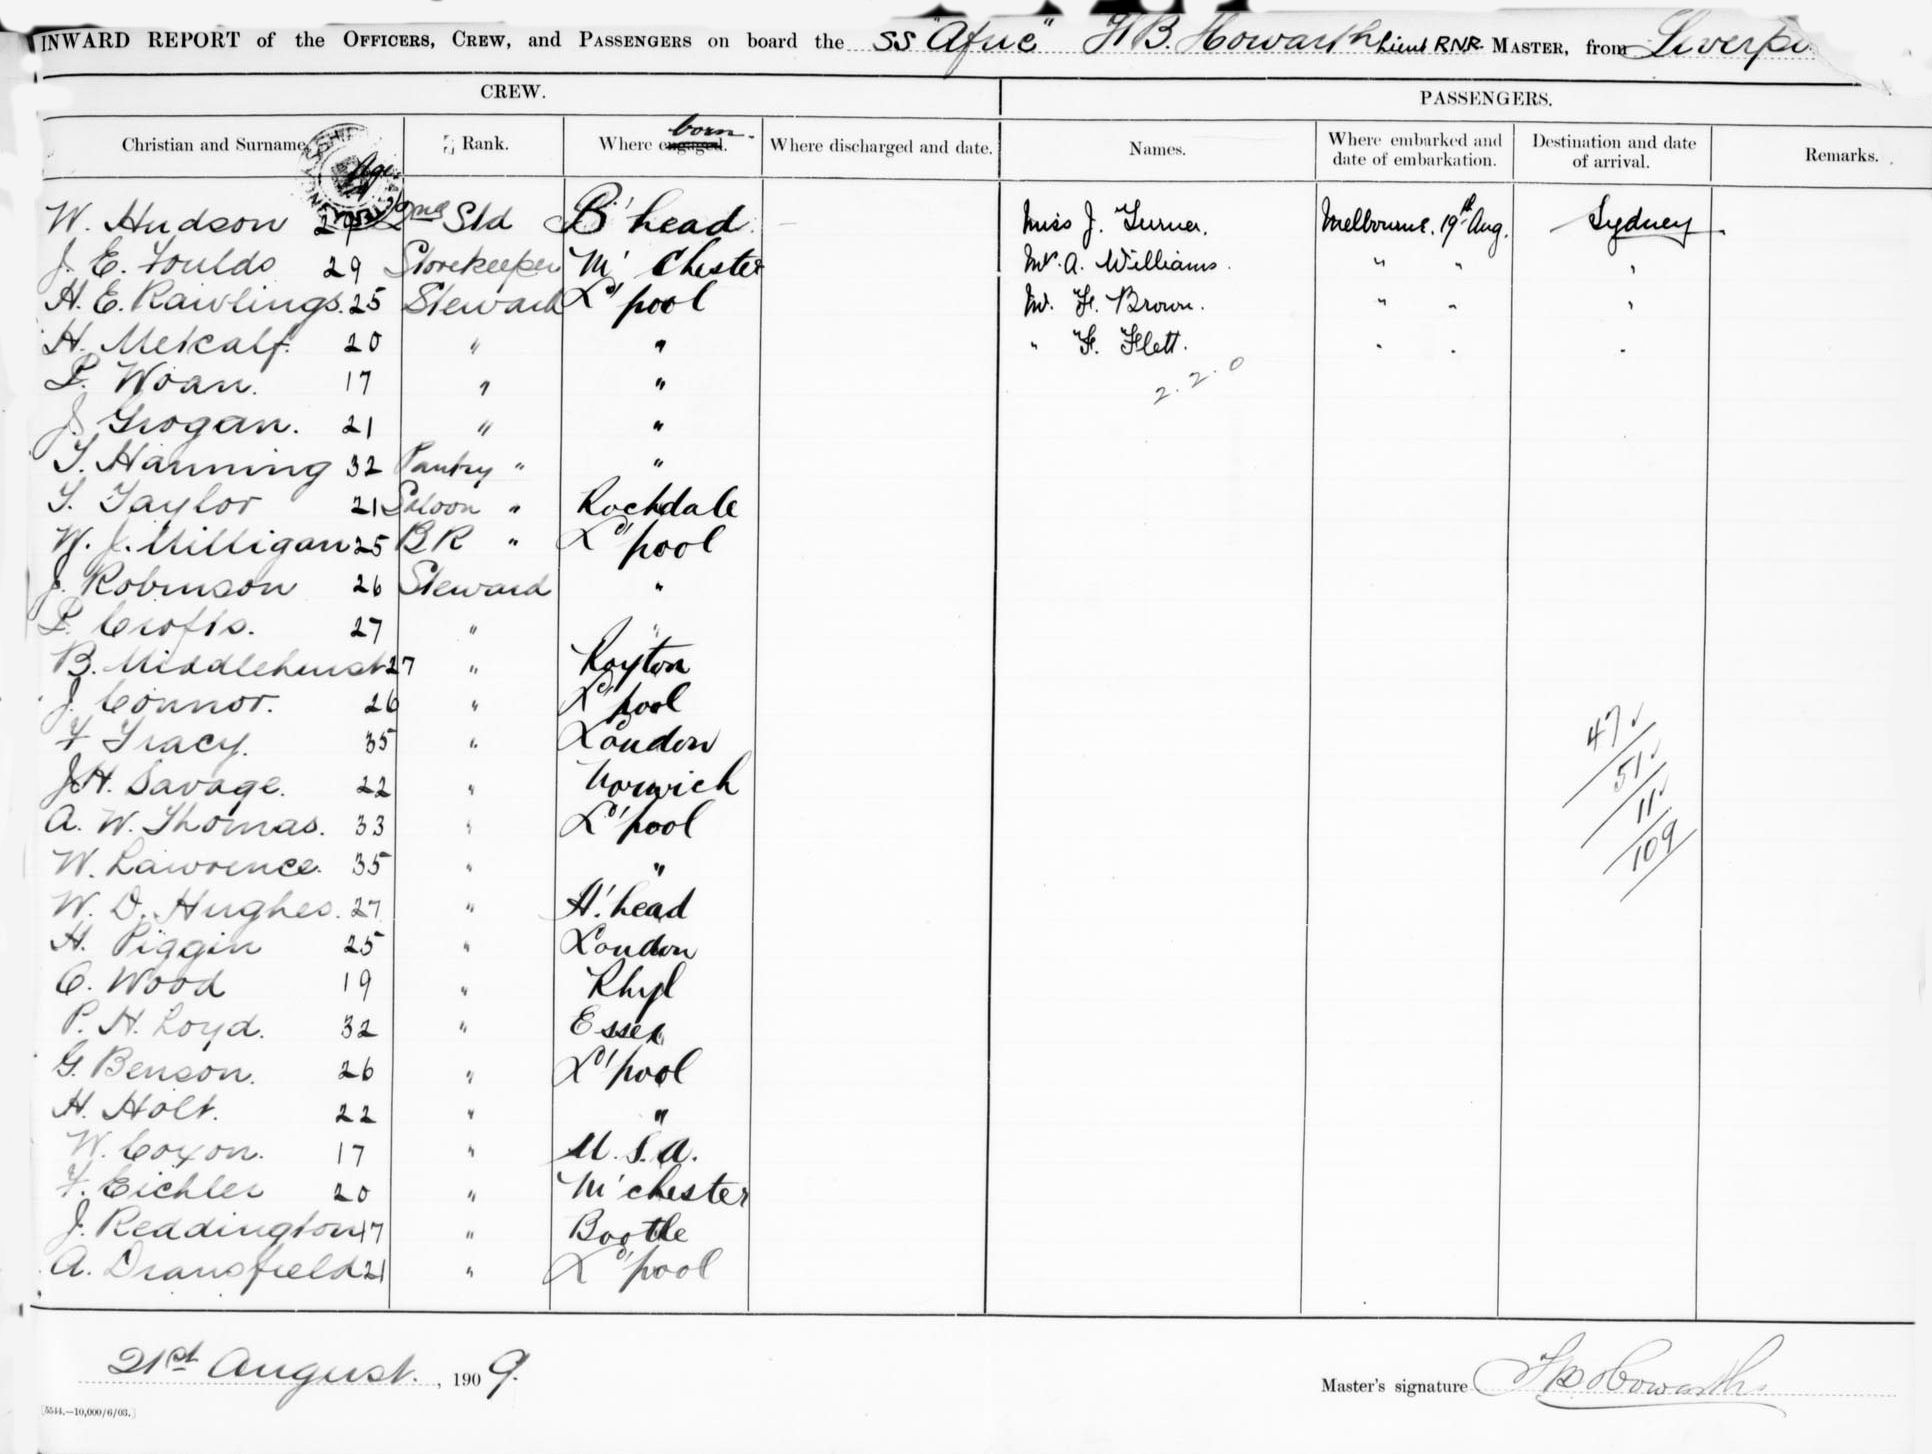 INWARD REPORT of the OFFICERS, CREW, and PASSENGERS on board the SS "Afric" F B. Howarth Lieut RNR. MASTER, from Liverpo
CREW. PASSENGERS.
Christian and Surname Age Rank. Where engaged. born. Where discharged and date. Names. Where embarked and date of embarkation. Destination and date of arrival. Remarks.
W. Hudson 2nd Std B'head Miss J. Turner. Melbourne. 19th Aug. Sydney
J. E. Foulds 29 Storekeeper M'Chester Mr. A. Williams. " " "
H. E. Rawlings. 25 Steward L'pool Mr. F. Brown. " " "
H. Metcalf. 20 " " " F. Flett. " " "
P. Woan. 17 " " 2.2.0
J. Grogan. 21 " "
T. Hanning 32 Pantry " "
T. Taylor 21 Saloon " Rochdale
W. J. Milligan 25 BR " L'pool
J. Robinson 26 Steward "
P. Crofts. 27 " "
B. Middlehurst 27 " Royton
J. Connor. 26 " L'pool
F Tracy. 35 " London
J H. Savage. 22 " Norwich
A. W. Thomas. 33 " L'pool
W. Lawrence. 35 " "
W. D. Hughes. 27 " H'head
H. Piggin 25 " London
C. Wood 19 " Rhyl
P. H. Loyd. 32 " Essex
G. Benson. 26 " L'pool
H. Holt. 22 " "
W. Coxon. 17 " U.S.A.
F. Eichler 20 " M'chester
J. Reddington 17 " Bootle
A. Dransfield 21 " L'pool
47
51
11
109
21st August, 1909.
Master's signature F B Howarth
[5544.—10,000/6/03.]